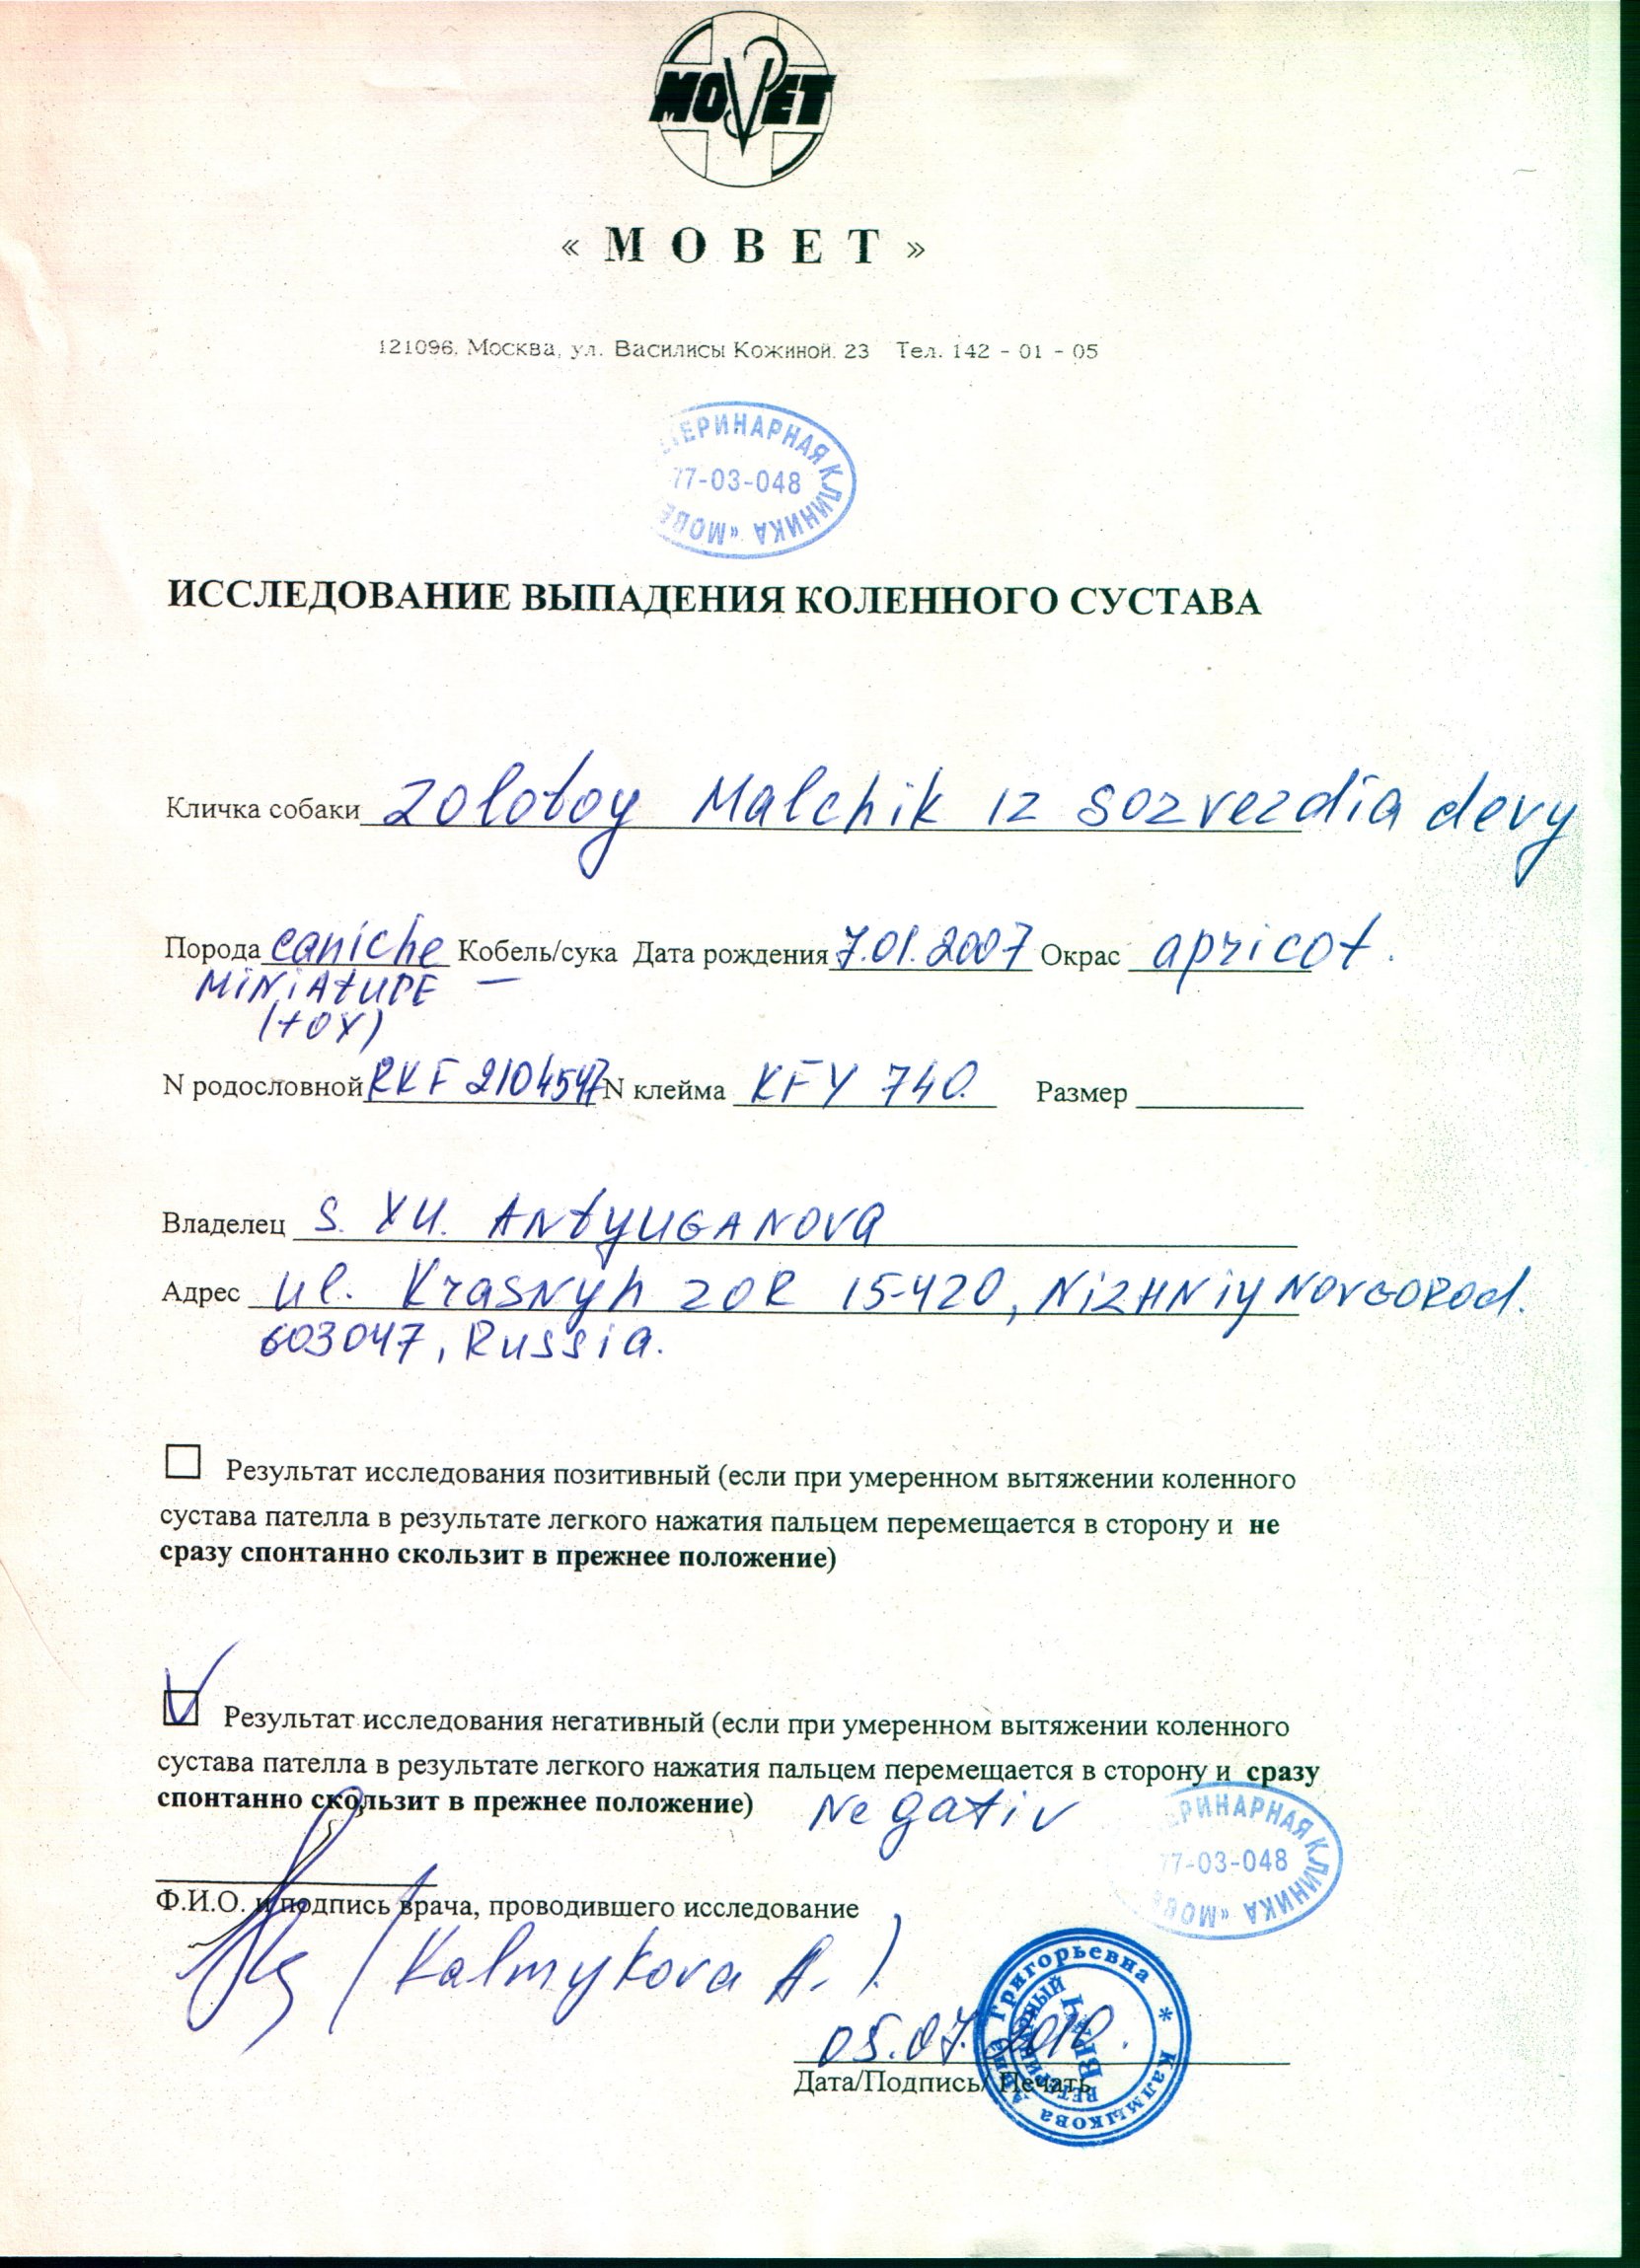 MOVET
« М О В Е Т »
121096, Москва, ул. Василисы Кожиной, 23 Тел. 142 - 01 - 05
ТЕРИНАРНАЯ КЛИНИКА «МОВЕ
77-03-048
ИССЛЕДОВАНИЕ ВЫПАДЕНИЯ КОЛЕННОГО СУСТАВА
Кличка собаки Zolotoy Malchik iz sozvezdia devy
Порода caniche Кобель/сука Дата рождения 7.01.2007 Окрас apricot.
MINIATURE —
(toy)
N родословной RKF 2104547 N клейма KFY 740. Размер
Владелец S. YU. ANtyUGANOVA
Адрес ul. Krasnyh zor 15-420, Nizhniy Novgorod.
603047, Russia.
Результат исследования позитивный (если при умеренном вытяжении коленного
сустава пателла в результате легкого нажатия пальцем перемещается в сторону и не
сразу спонтанно скользит в прежнее положение)
Результат исследования негативный (если при умеренном вытяжении коленного
сустава пателла в результате легкого нажатия пальцем перемещается в сторону и сразу
спонтанно скользит в прежнее положение) Negativ
РИНАРНАЯ КЛИНИКА «МОВЕ
77-03-048
Ф.И.О. и подпись врача, проводившего исследование
(Kalmykova A.)
05.07.2010.
Дата/Подпись/ Печать
Калмыкова Анна Григорьевна *
ветеринарный
врач